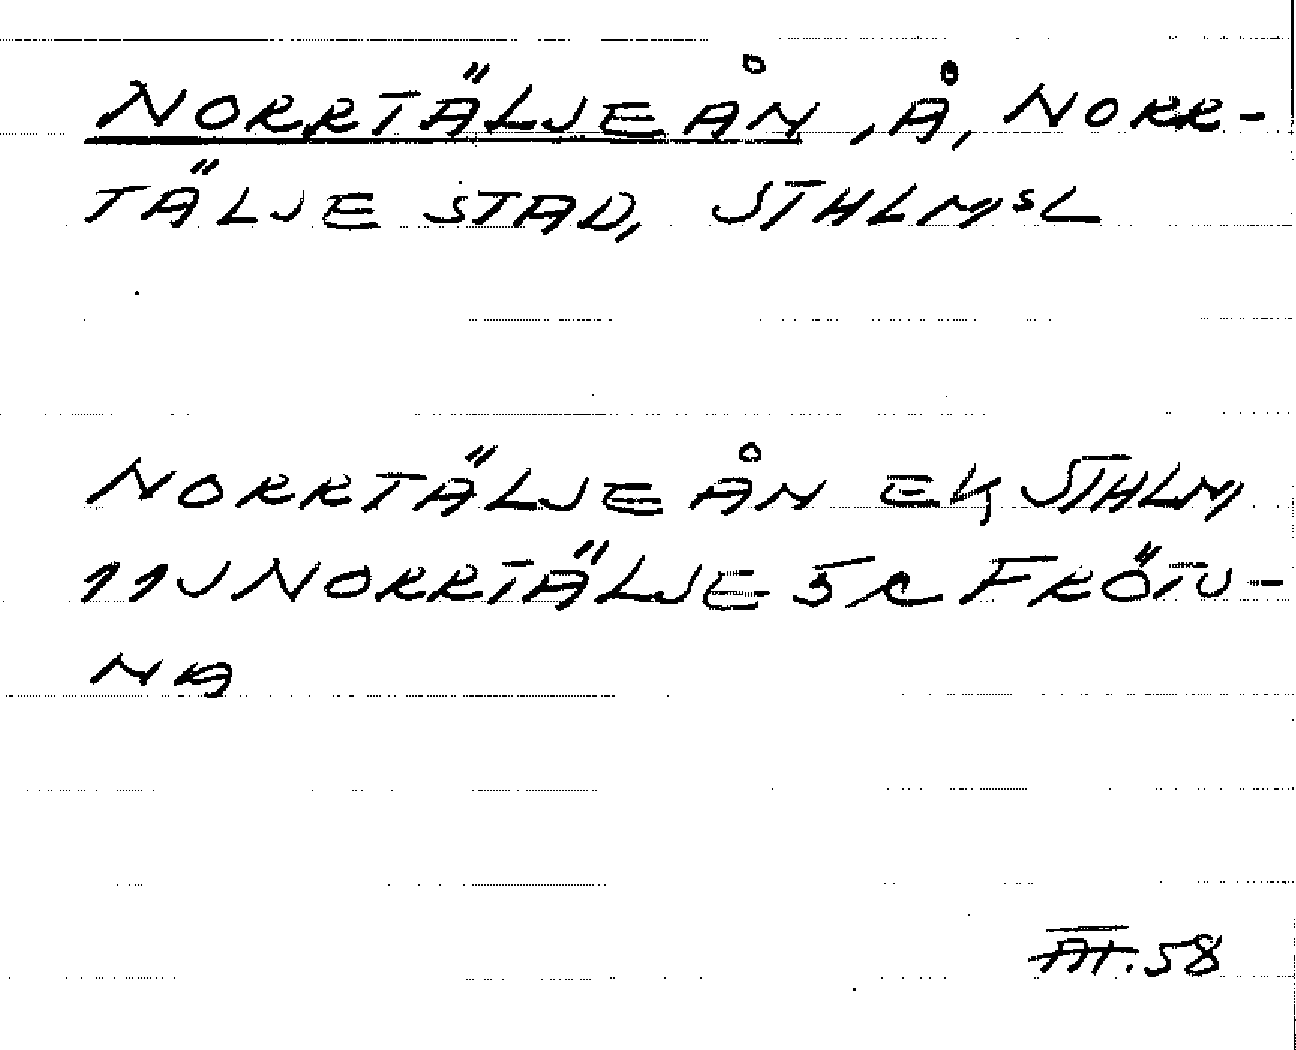 NORRTÄLJEÅN, Å, NORR-
TÄLJE STAD, STHLMSL
NORRTÄLJEÅN EK STHLM
11J NORRTÄLJE 5c FRÖTU-
NA
58